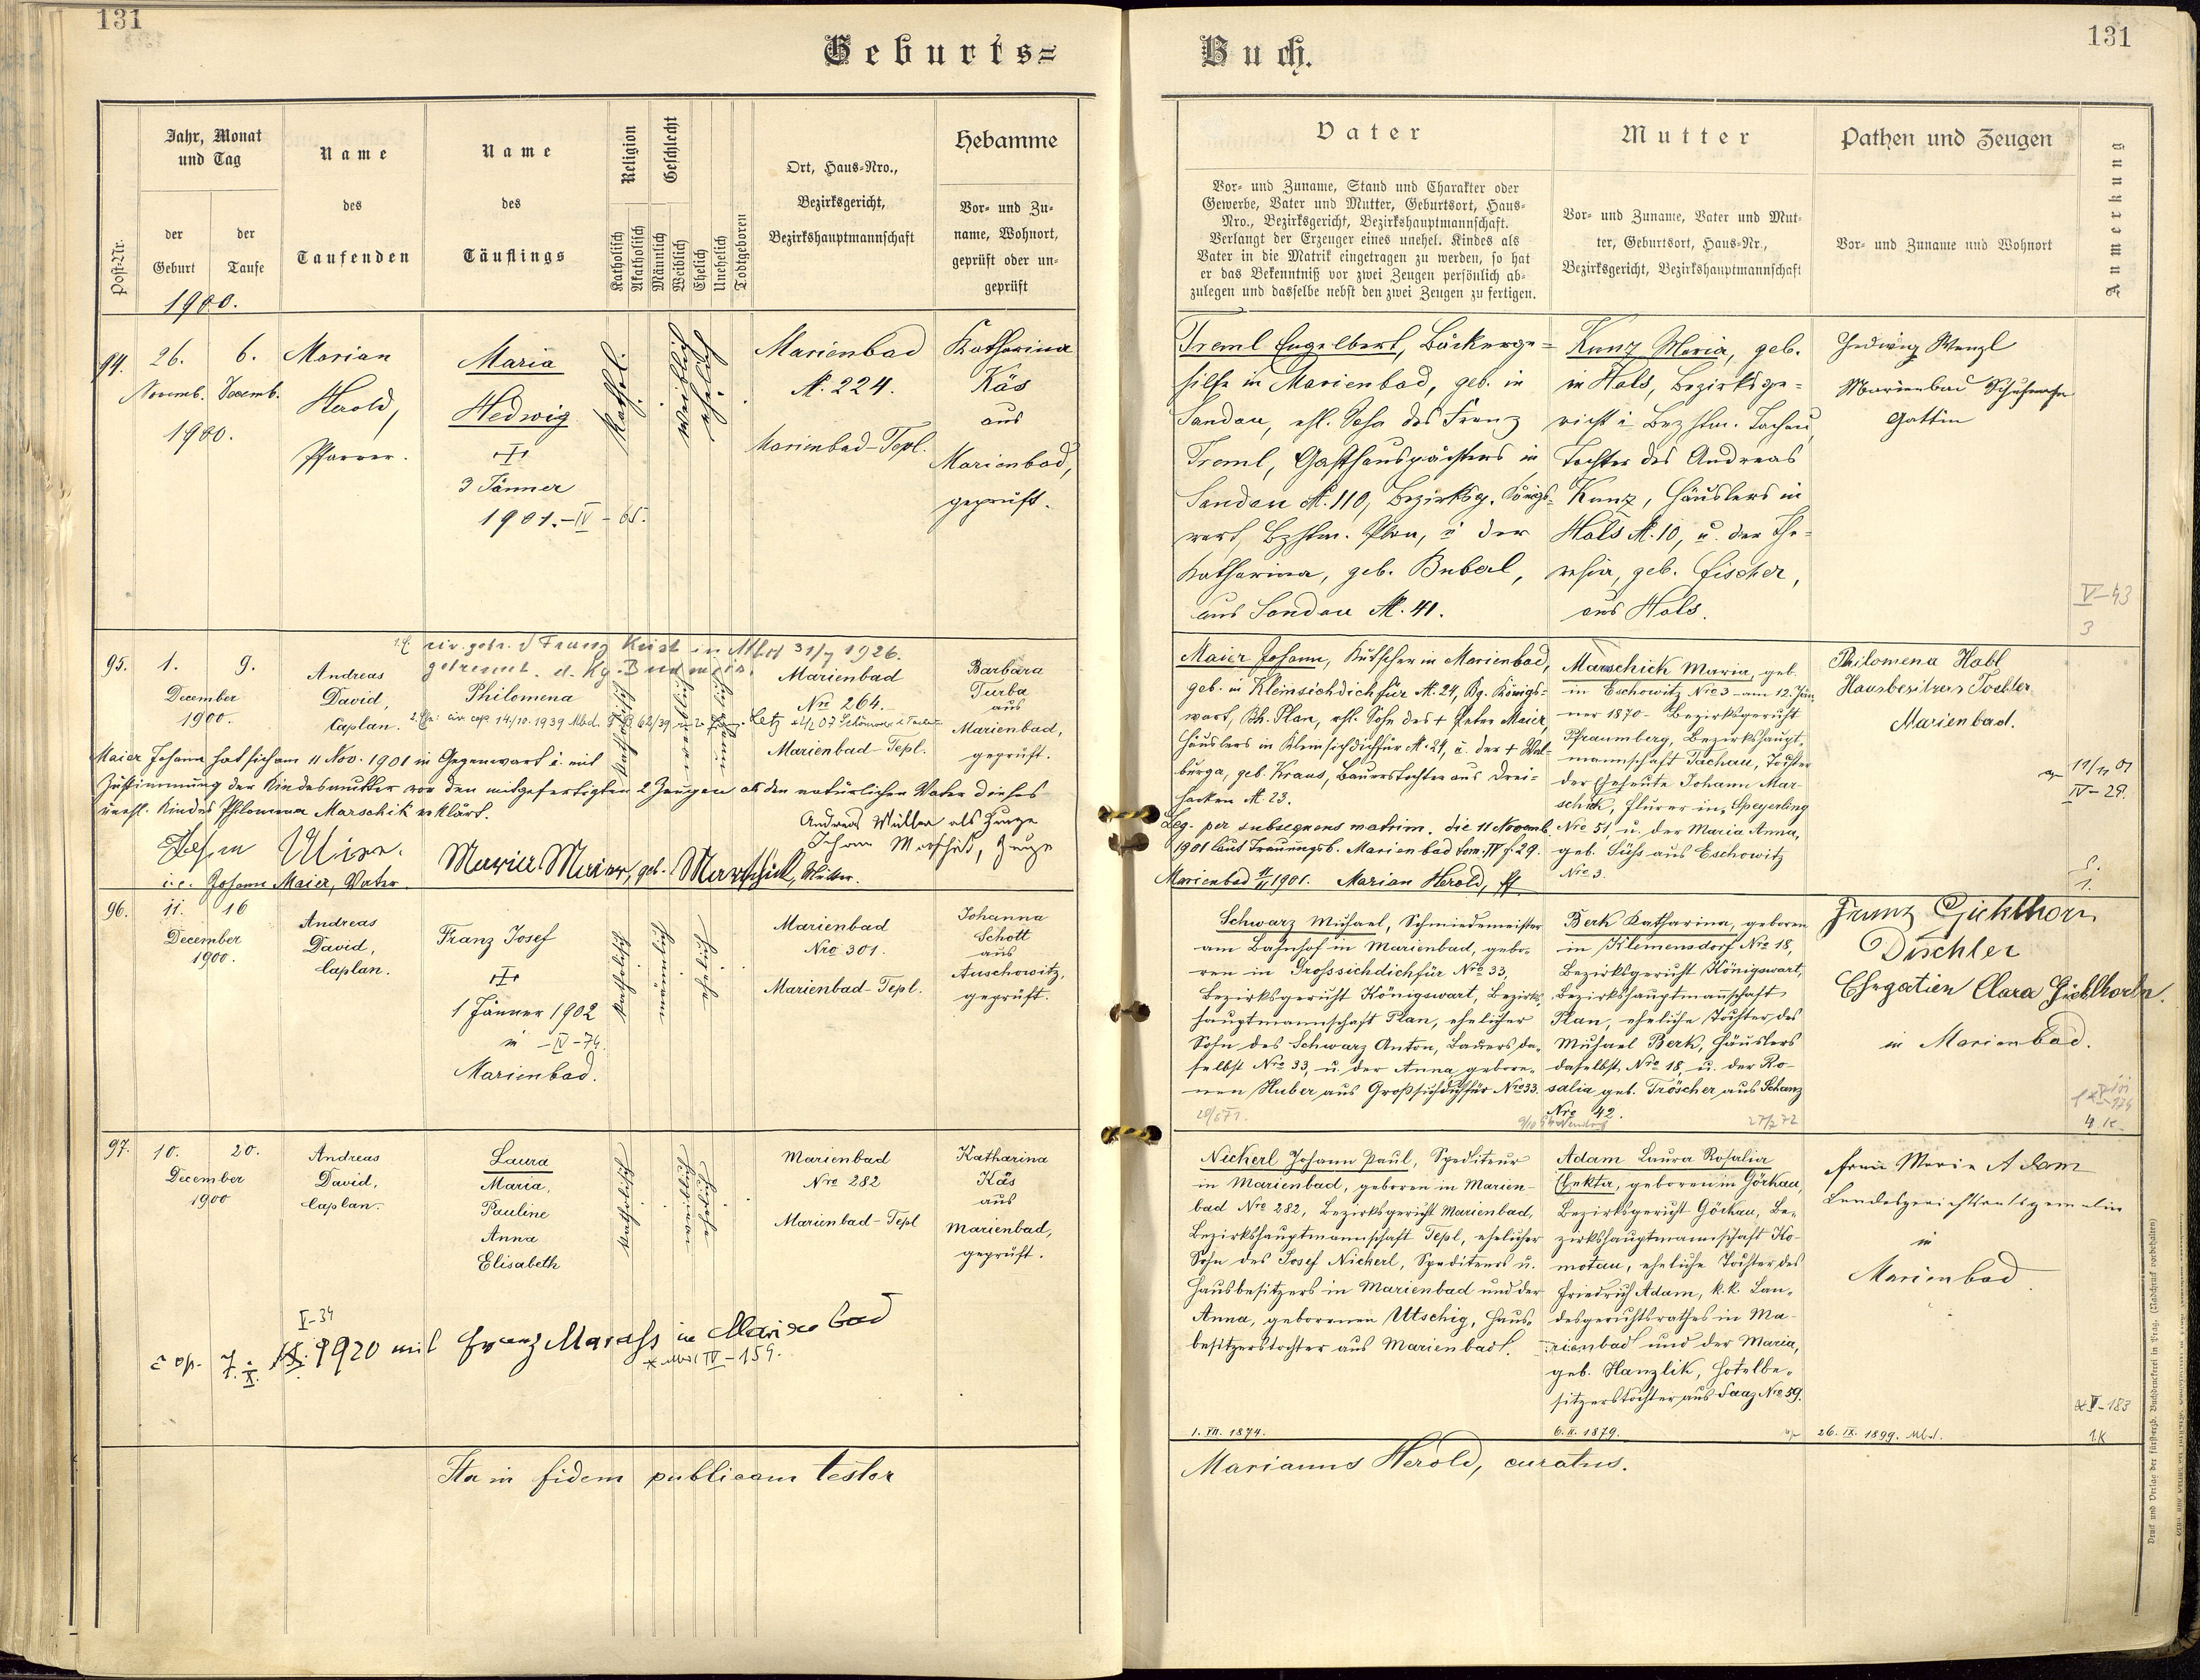 131
Geburts=
Jahr, Monat
und Tag
der
Geburt
der
Taufe
Post-Nr.
Name
des
Taufenden
Name
des
Täuflings
Religion
Katholisch
Akatholisch
Geschlecht
Männlich
Weiblich
Ehelich
Unehelich
Todtgeboren
Ort, Haus-Nro.,
Bezirksgericht,
Bezirkshauptmannschaft
Hebamme
Vor- und Zu-
name, Wohnort,
geprüft oder un-
geprüft
1900.
94.
26.
Novemb.
1900.
6.
Decemb.
Marian
Herold,
Pfarrer.
Maria
Hedwig
3 Jänner
1901. - IV - 65.
kathol.
weiblich
ehelich
Marienbad
N. 224.
Marienbad-Tepl.
Katharina
Käs
aus
Marienbad,
geprüft.
95.
1.
December
1900.
9.
Andreas
David,
Caplan.
civ. getr. Franz in Mbd 31/7 1926.
getrennt
Philomena
14/10. 1939 Mbd.
katholisch
Marienbad
Nro 264.
Marienbad-Tepl.
Barbara
Turba
aus
Marienbad,
geprüft.
Maier Johann hat sich am 11 Nov. 1901 in Gegenwart u. mit
Zustimmung der Kindesmutter vor den mitgefertigten 2 Zeugen als den natürlichen Vater dieses
unehl. Kindes Philomena Marschik erklärt.
Andreas Müller als Zeuge
Johann Marschik, Zeuge
i.e. Johann Maier, Vater.
Maria Maier, geb. Marschick, Mutter.
96.
11.
December
1900.
16
Andreas
David,
Caplan.
Franz Josef
1 Jänner 1902
in - IV - 74.
Marienbad.
katholisch
männlich
ehelich
Marienbad
Nro 301.
Marienbad-Tepl.
Johanna
Schott
aus
Auschowitz,
geprüft.
97.
10.
December
1900
20.
Andreas
David,
Caplan.
Laura
Maria,
Pauline
Anna
Elisabeth
katholisch
Marienbad
Nro 282
Marienbad-Tepl
Katharina
Käs
aus
Marienbad,
geprüft.
V-34
cop. 7. X. 1920 mit Franz Marass in Marienbad
IV - 159.
Ita in fidem publicam testor
131
Buch.
Vater
Vor- und Zuname, Stand und Charakter oder
Gewerbe, Vater und Mutter, Geburtsort, Haus-
Nro., Bezirksgericht, Bezirkshauptmannschaft.
Verlangt der Erzeuger eines unehel. Kindes als
Vater in die Matrik eingetragen zu werden, so hat
er das Bekenntniß vor zwei Zeugen persönlich ab-
zulegen und dasselbe nebst den zwei Zeugen zu fertigen.
Mutter
Vor- und Zuname, Vater und Mut-
ter, Geburtsort, Haus-Nr.,
Bezirksgericht, Bezirkshauptmannschaft
Pathen und Zeugen
Vor- und Zuname und Wohnort
Anmerkung
Treml Engelbert, Bäckerge=
hilfe in Marienbad, geb. in
Sandau, ehl. Sohn des Franz
Treml, Gasthauspächters in
Sandau N. 110, Bezirksg. Königs-
wart, Bzhtm. Plan, u der
Katharina, geb. Buberl,
aus Sandau N. 41.
Kunz Maria, geb.
in Hals, Bezirksge=
richt u Bezhtm. Tachau,
Tochter des Andreas
Kunz, Häuslers in
Hals N. 10, u. der The=
resia, geb. Fischer,
aus Hals.
Hedwig Wenzl
Marienbad
Gattin
V-43
3
Maier Johann, Kutscher in Marienbad,
geb. in Kleinsichdichfür N. 24, Bg. Königs=
wart, Bh. Plan, ehl. Sohn des + Peter Maier,
Häuslers in Kleinsichdichfür N. 24, u. der + Wal=
burga, geb. Kraus, Bauerstochter aus Drei=
hacken N. 23.
Leg. per subsequens matrim. die 11 Novemb.
1901 laut Trauungsb. Marienbad tom. IV f. 29.
Marienbad 11/11 1901. Marian Herold, Pf
Marschick Maria, geb.
in Eschowitz Nro 3 am 12. Jän=
ner 1870 - Bezirksgericht
Pfraumberg, Bezirkshaupt=
mannschaft Tachau, Tochter
der Eheleute Johann Mar=
schik, in Speyerling
Nro 51, u. der Maria Anna,
geb. Süß aus Eschowitz
Nro 3.
Philomena Habl
Hausbesitzers Tochter
Marienbad.
11/11 01
IV-29.
1.
Schwarz Michael, Schmiedemeister
am Bahnhof in Marienbad, gebo=
ren in Grosssichdichfür Nro 33,
Bezirksgericht Königswart, Bezirks=
hauptmannschaft Plan, ehelicher
Sohn des Schwarz Anton, Bauers da=
selbst Nro 33, u. der Anna gebore=
nen Huber aus Großsichdichfür Nro 33.
Berk Katharina, geboren
in Klemensdorf Nro 18,
Bezirksgericht Königswart,
Bezirkshauptmannschaft
Plan, eheliche Tochter des
Michael Berk, Häuslers
daselbst Nro 18, u. der Ro=
salia geb. Tröscher aus Schanz
Nro 42.
Franz Gichlhorn
Dischler
Ehegatien Clara Gichlhorn.
in Marienbad.
4 K.
Nickerl Johann Paul, Spediteur
in Marienbad, geboren in Marien=
bad Nro 282, Bezirksgericht Marienbad,
Bezirkshauptmannschaft Tepl, ehelicher
Sohn des Josef Nickerl, Spediteurs u.
Hausbesitzers in Marienbad und der
Anna, geborenen Utschig, Haus=
besitzerstochter aus Marienbad.
1. VII. 1874.
Adam Laura Rosalia
Thekla, geboren in Görkau,
Bezirksgericht Görkau, Be=
zirkshauptmannschaft Ko=
motau, eheliche Tochter des
Friedrich Adam, k.k. Lan=
desgerichtsrathes in Ma=
rienbad und der Maria,
geb. Hanzlik, Hotelbe=
sitzerstochter aus Saaz Nro 59.
6. II. 1879.
Frau Marie Adam
Landesgerichtsratsgemalin
in
Marienbad
26. IX. 1899. Mbd.
V-183
1 K
Marianus Herold, curatus.
Druck und Verlag der fürsterzb. Buchdruckerei in Prag. (Nachdruck vorbehalten)